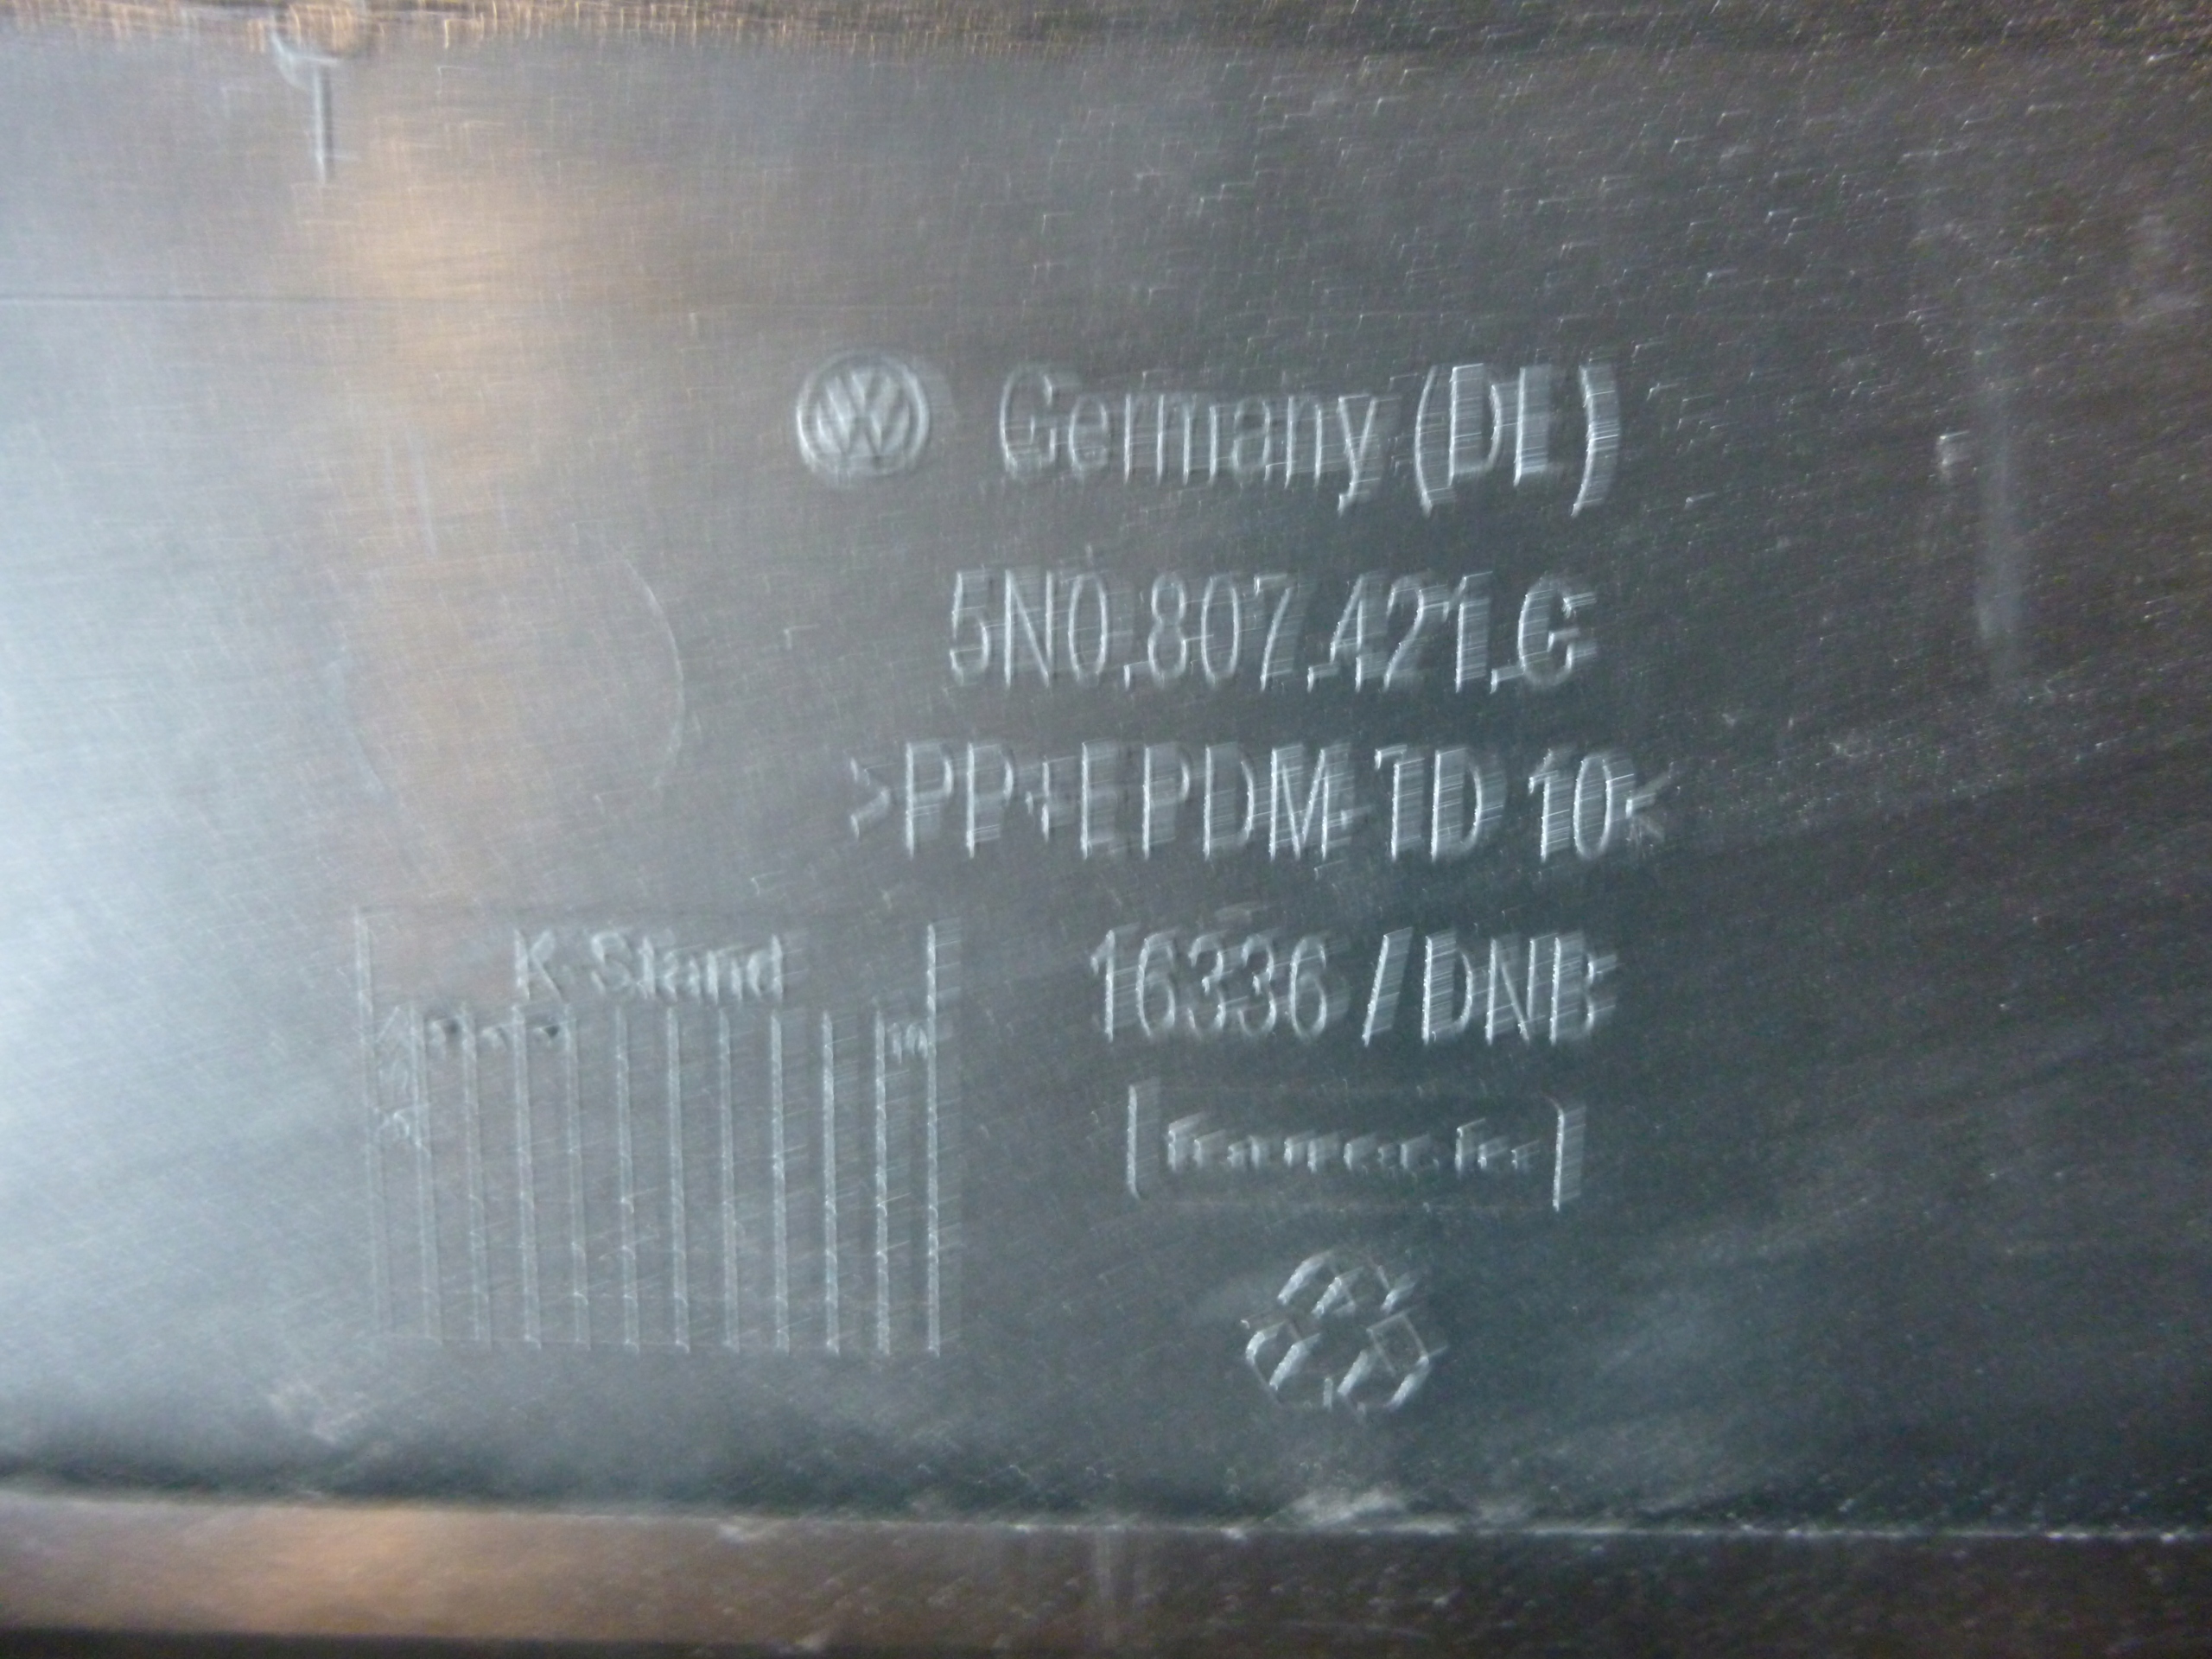 Germany (DE)
5N0.807.421.G
>PP+EPDM-TD 10<
K-Stand
16336 / DNB